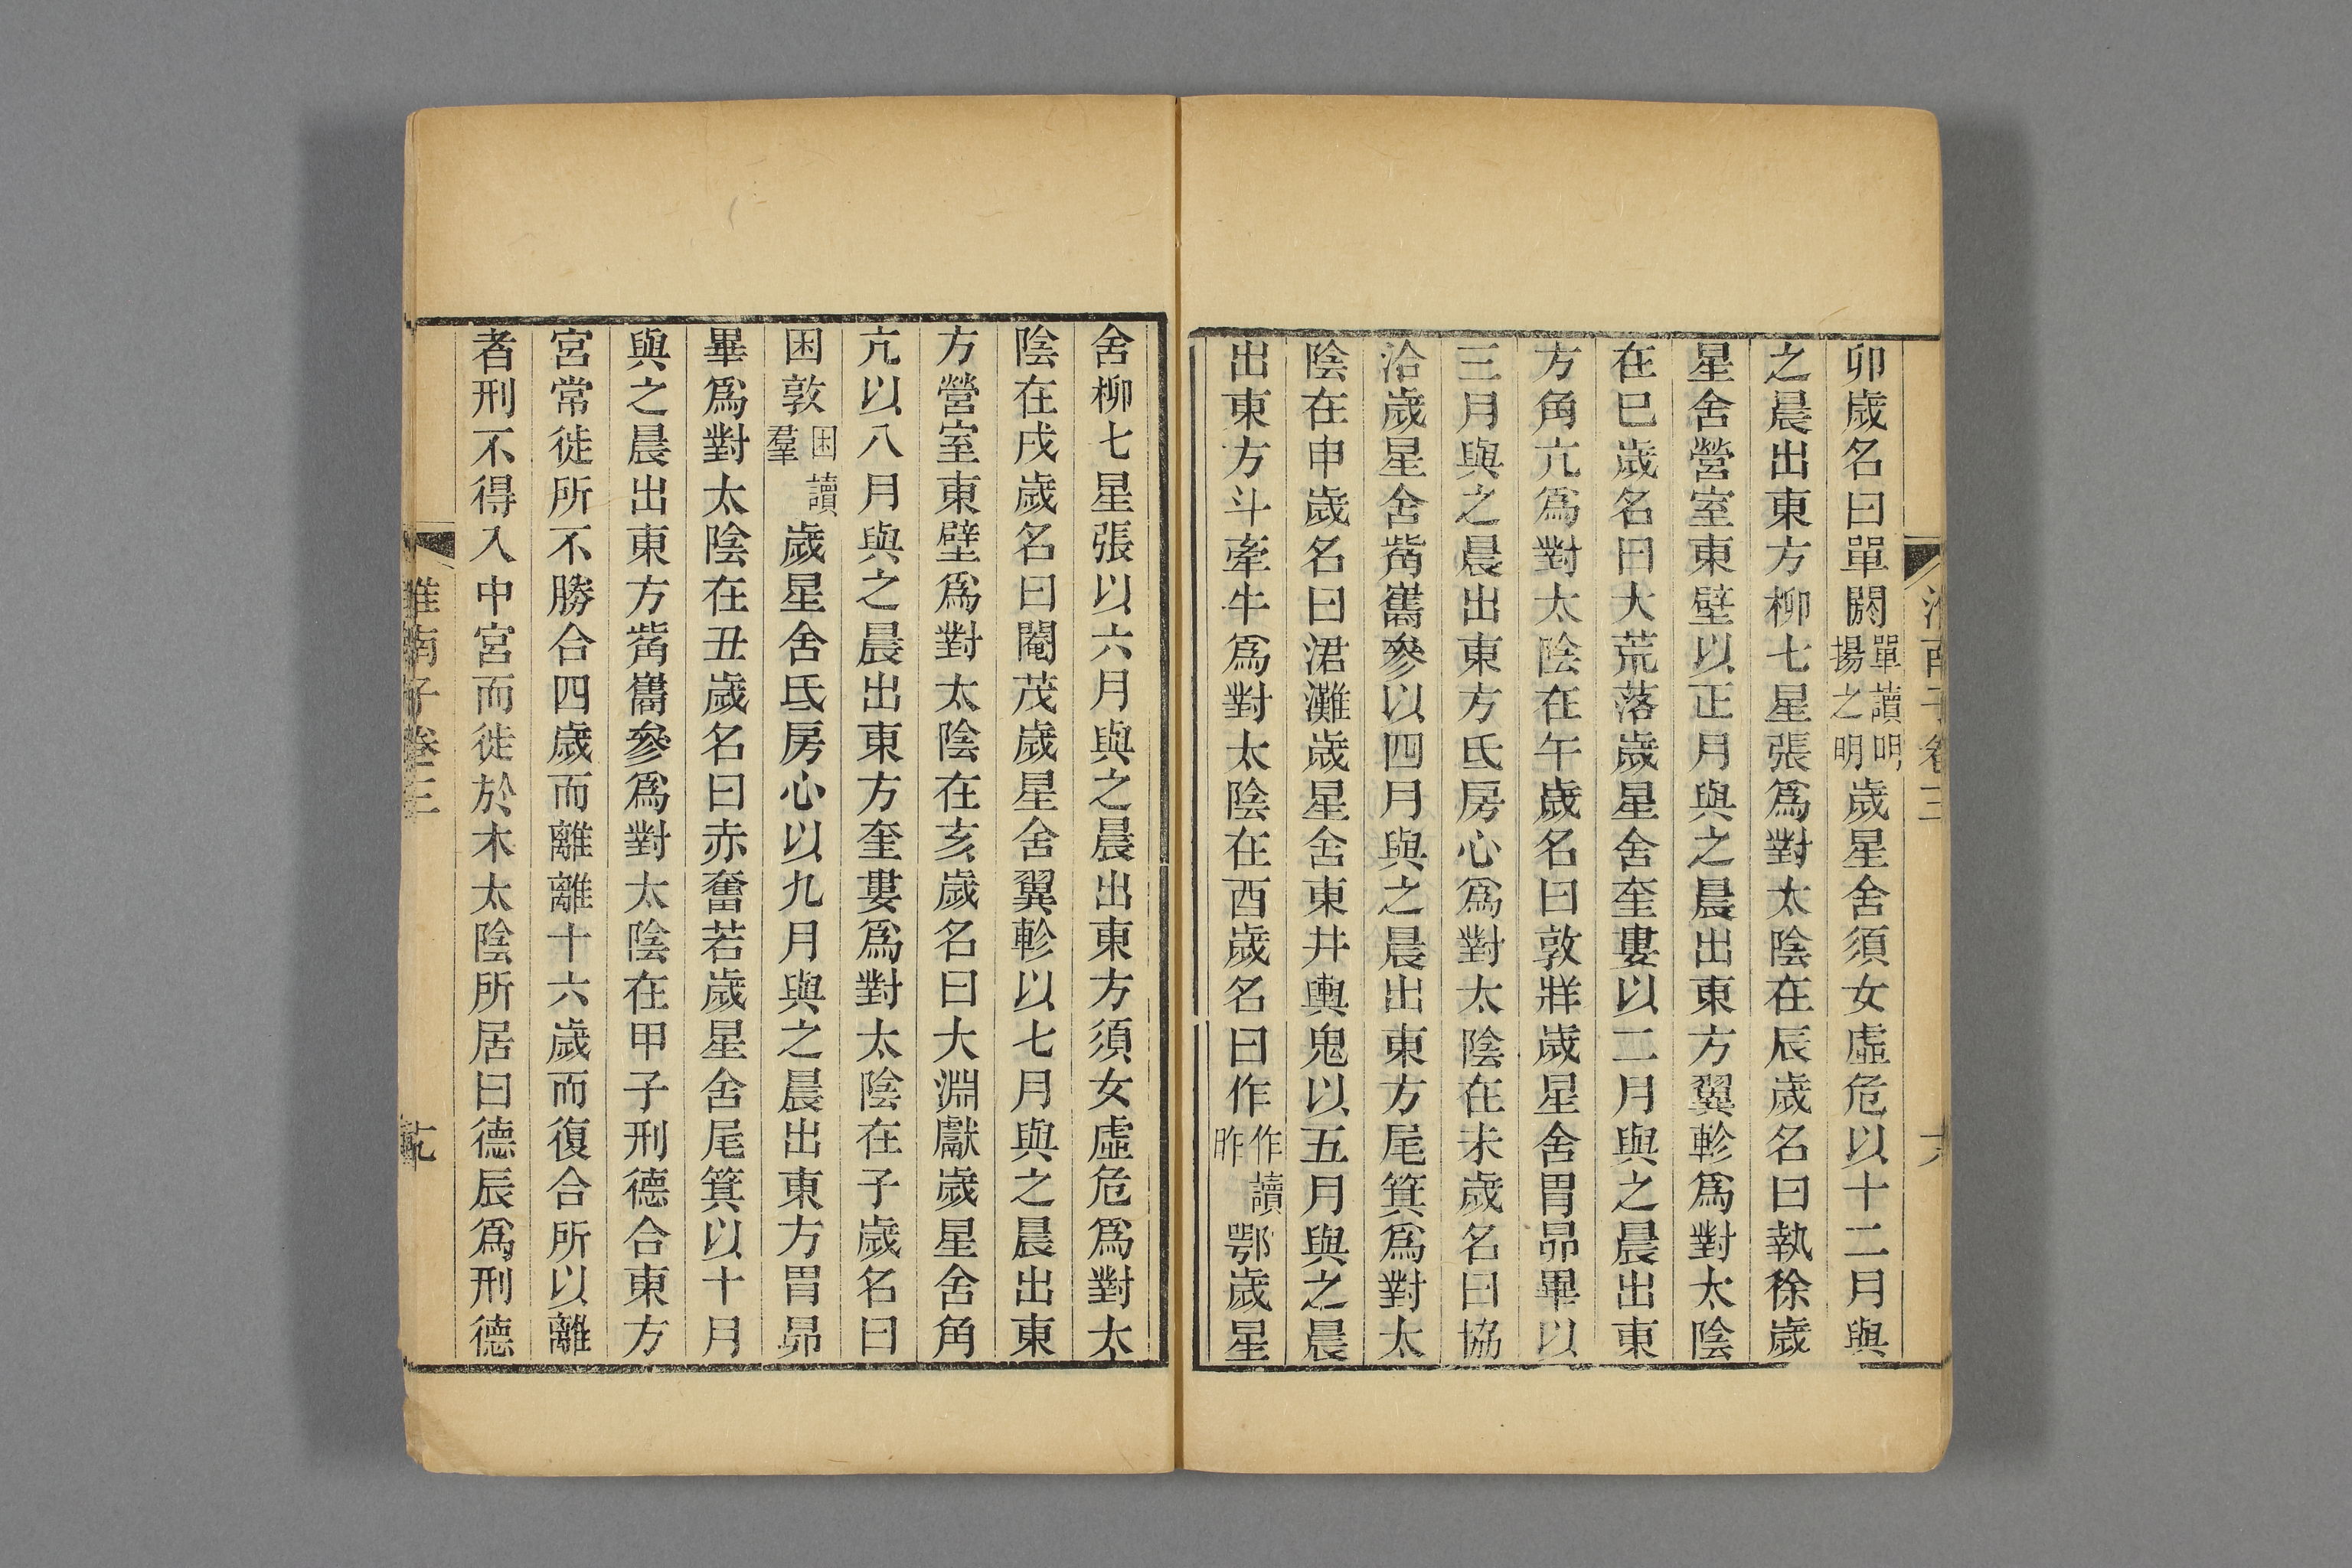 卯歲名曰單閼單讀明揚之明歲星舍須女虛危以十二月與
之晨出東方柳七星張爲對太陰在辰歲名曰執徐歲
星舍營室東壁以正月與之晨出東方翼軫爲對太陰
在巳歲名曰大荒落歲星舍奎婁以二月與之晨出東
方角亢爲對太陰在午歲名曰敦牂歲星舍胃昴畢以
三月與之晨出東方氐房心爲對太陰在未歲名曰協
洽歲星舍觜巂參以四月與之晨出東方尾箕爲對太
陰在申歲名曰涒灘歲星舍東井輿鬼以五月與之晨
出東方斗牽牛爲對太陰在酉歲名曰作作讀昨鄂歲星
舍柳七星張以六月與之晨出東方須女虛危爲對太
陰在戌歲名曰閹茂歲星舍翼軫以七月與之晨出東
方營室東壁爲對太陰在亥歲名曰大淵獻歲星舍角
亢以八月與之晨出東方奎婁爲對太陰在子歲名曰
困敦困讀羣歲星舍氐房心以九月與之晨出東方胃昴
畢爲對太陰在丑歲名曰赤奮若歲星舍尾箕以十月
與之晨出東方觜巂參爲對太陰在甲子刑德合東方
宮常徙所不勝合四歲而離離十六歲而復合所以離
者刑不得入中宮而徙於木太陰所居曰德辰爲刑德
淮南子卷三